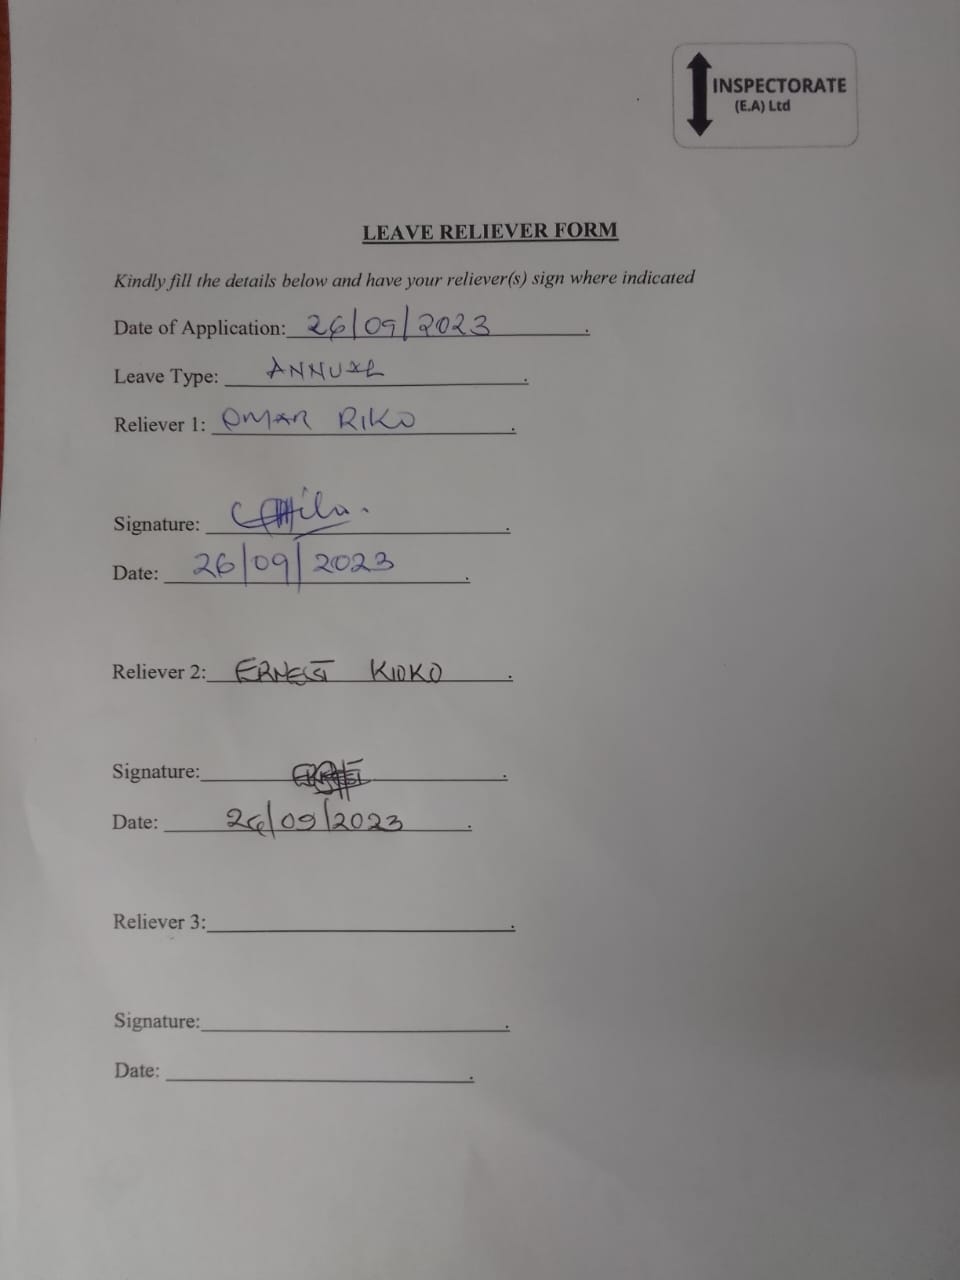 INSPECTORATE
(E.A) Ltd
LEAVE RELIEVER FORM
Kindly fill the details below and have your reliever(s) sign where indicated
Date of Application: 26/09/2023.
Leave Type: ANNUAL.
Reliever 1: OMAR RIKO.
Signature:
Date: 26/09/2023.
Reliever 2: ERNEST KIOKO.
Signature:
Date: 26/09/2023.
Reliever 3:
Signature:
Date: